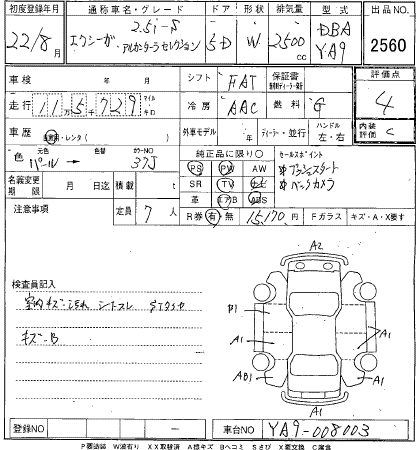 初度登録年月 通称車名・グレード ドア 形状 排気量 型式 出品NO.
22/8月 エクシーガ 2.5i-S アルカンターラセレクション 5D W 2500cc DBA YA9 2560
車検 年 月 シフト FAT 保証書 評価点
走行 115729 マイル キロ 冷房 AAC 燃料 G 4
車歴 自家用・レンタ( ) 外車モデル 年 ディーラー・並行 ハンドル 左・右 内装評価 C
色 元色 パール→ 色替 カラーNO 37J 純正品に限り○ セールスポイント
名義変更期限 月 日迄 積載 t PS PW AW プッシュスタート
SR TV ナビ バックカメラ
革 エアB ABS
注意事項 定員 7人 R券 有・無 15,170円 Fガラス キズ・A・X要す
検査員記入
室内キズ・汚れ シートスレ
キズ-B
A2
B1
A1 A1
AB1 A1
A1
登録NO ー 車台NO YA9-008003
P要塗装 W波有り XX取替済 A線キズ Bヘコミ Sさび X要交換 C腐食